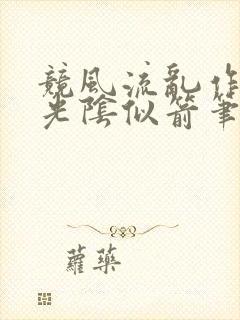 競風流亂作
光陰似箭筆
蘿藥